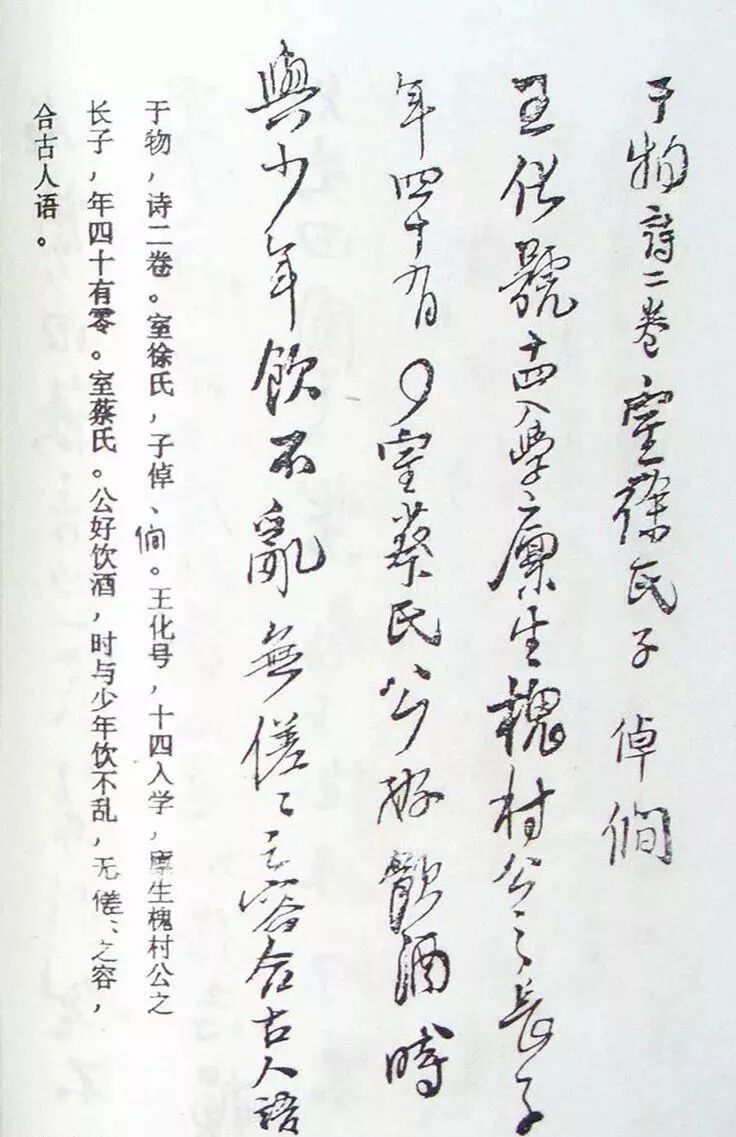 于物詩二卷室蔡氏子倬僩
王化號十四入學廪生槐村公之長子
年四十有〇室蔡氏公好飲酒時
與少年飲不亂無傞〻之容合古人語
于物，诗二卷。室徐氏，子倬、僩。王化号，十四入学，廪生槐村公之
长子，年四十有零。室蔡氏。公好饮酒，时与少年饮不乱，无傞〻之容，
合古人语。